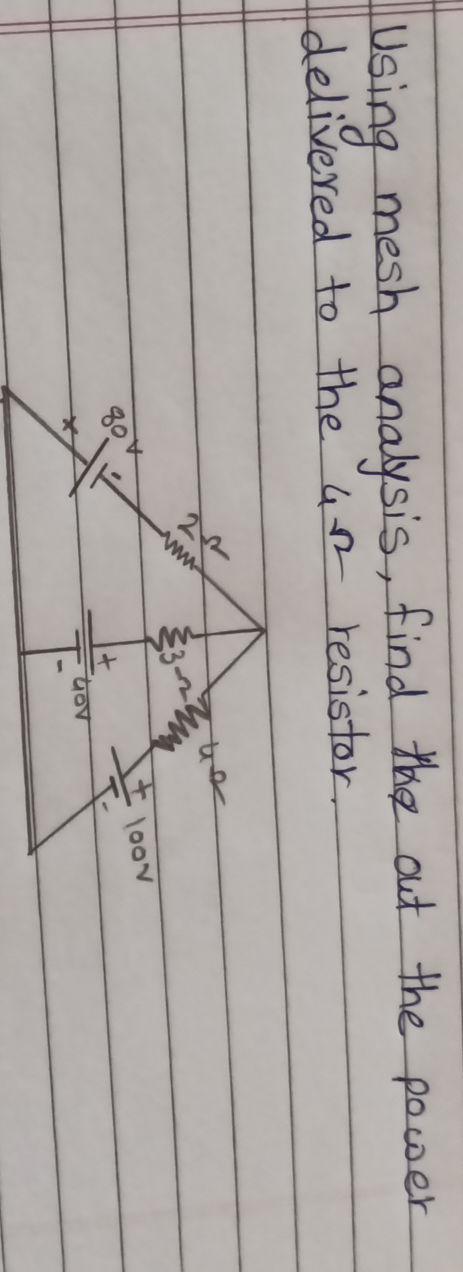 Using mesh analysis, find the out the power
delivered to the 4Ω resistor.
2Ω
3Ω
4Ω
80V
-
+
+
40V
-
+
100V
-